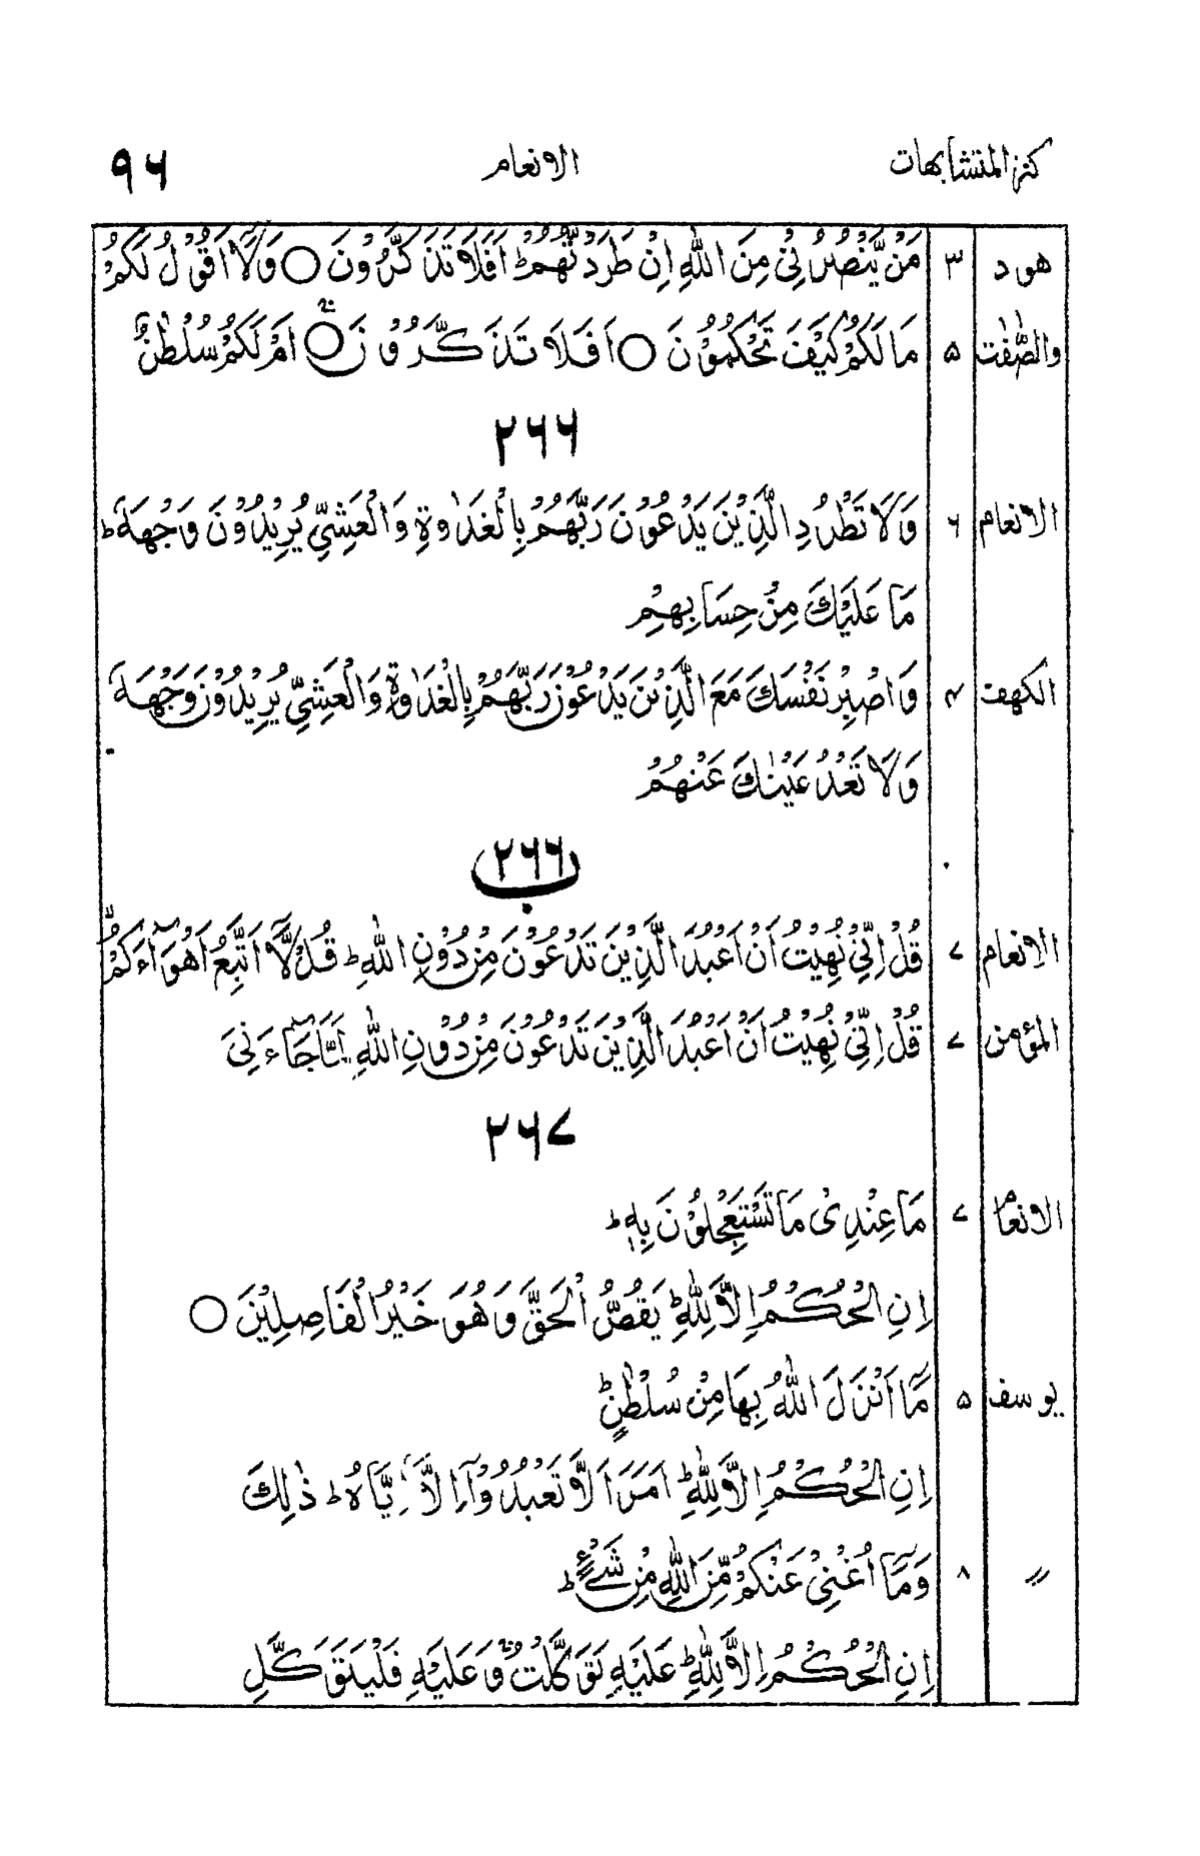 كنز المتشابهات الانعام ٩٦
هود ٣ مَنْ يَّنْصُرُنِيْ مِنَ اللّٰهِ اِنْ طَرَدْتُّهُمْ ؕ اَفَلَا تَذَكَّرُوْنَ ○ وَلَاۤ اَقُوْلُ لَكُمْ
والصّٰفّٰت ٥ مَا لَكُمْ كَيْفَ تَحْكُمُوْنَ ○ اَفَلَا تَذَكَّرُوْنَ ○ اَمْ لَكُمْ سُلْطٰنٌ
٢٦٦
الانعام ٦ وَلَا تَطْرُدِ الَّذِيْنَ يَدْعُوْنَ رَبَّهُمْ بِالْغَدٰوةِ وَالْعَشِيِّ يُرِيْدُوْنَ وَجْهَهٗ ؕ
مَا عَلَيْكَ مِنْ حِسَابِهِمْ
الكهف ٤ وَاصْبِرْ نَفْسَكَ مَعَ الَّذِيْنَ يَدْعُوْنَ رَبَّهُمْ بِالْغَدٰوةِ وَالْعَشِيِّ يُرِيْدُوْنَ وَجْهَهٗ
وَلَا تَعْدُ عَيْنٰكَ عَنْهُمْ
٢٦٦ ب
الانعام ٧ قُلْ اِنِّيْ نُهِيْتُ اَنْ اَعْبُدَ الَّذِيْنَ تَدْعُوْنَ مِنْ دُوْنِ اللّٰهِ ؕ قُلْ لَّاۤ اَتَّبِعُ اَهْوَآءَكُمْ
المؤمن ٧ قُلْ اِنِّيْ نُهِيْتُ اَنْ اَعْبُدَ الَّذِيْنَ تَدْعُوْنَ مِنْ دُوْنِ اللّٰهِ لَمَّا جَآءَنِيَ
٢٦٧
الانعام ٧ مَا عِنْدِيْ مَا تَسْتَعْجِلُوْنَ بِهٖ ؕ
اِنِ الْحُكْمُ اِلَّا لِلّٰهِ ؕ يَقُصُّ الْحَقَّ وَهُوَ خَيْرُ الْفَاصِلِيْنَ ○
يوسف ٥ مَّاۤ اَنْزَلَ اللّٰهُ بِهَا مِنْ سُلْطٰنٍ ؕ
اِنِ الْحُكْمُ اِلَّا لِلّٰهِ ؕ اَمَرَ اَلَّا تَعْبُدُوْۤا اِلَّاۤ اِيَّاهُ ؕ ذٰلِكَ
〃 ٨ وَمَاۤ اُغْنِيْ عَنْكُمْ مِّنَ اللّٰهِ مِنْ شَيْءٍ ؕ
اِنِ الْحُكْمُ اِلَّا لِلّٰهِ ؕ عَلَيْهِ تَوَكَّلْتُ ۚ وَعَلَيْهِ فَلْيَتَوَكَّلِ